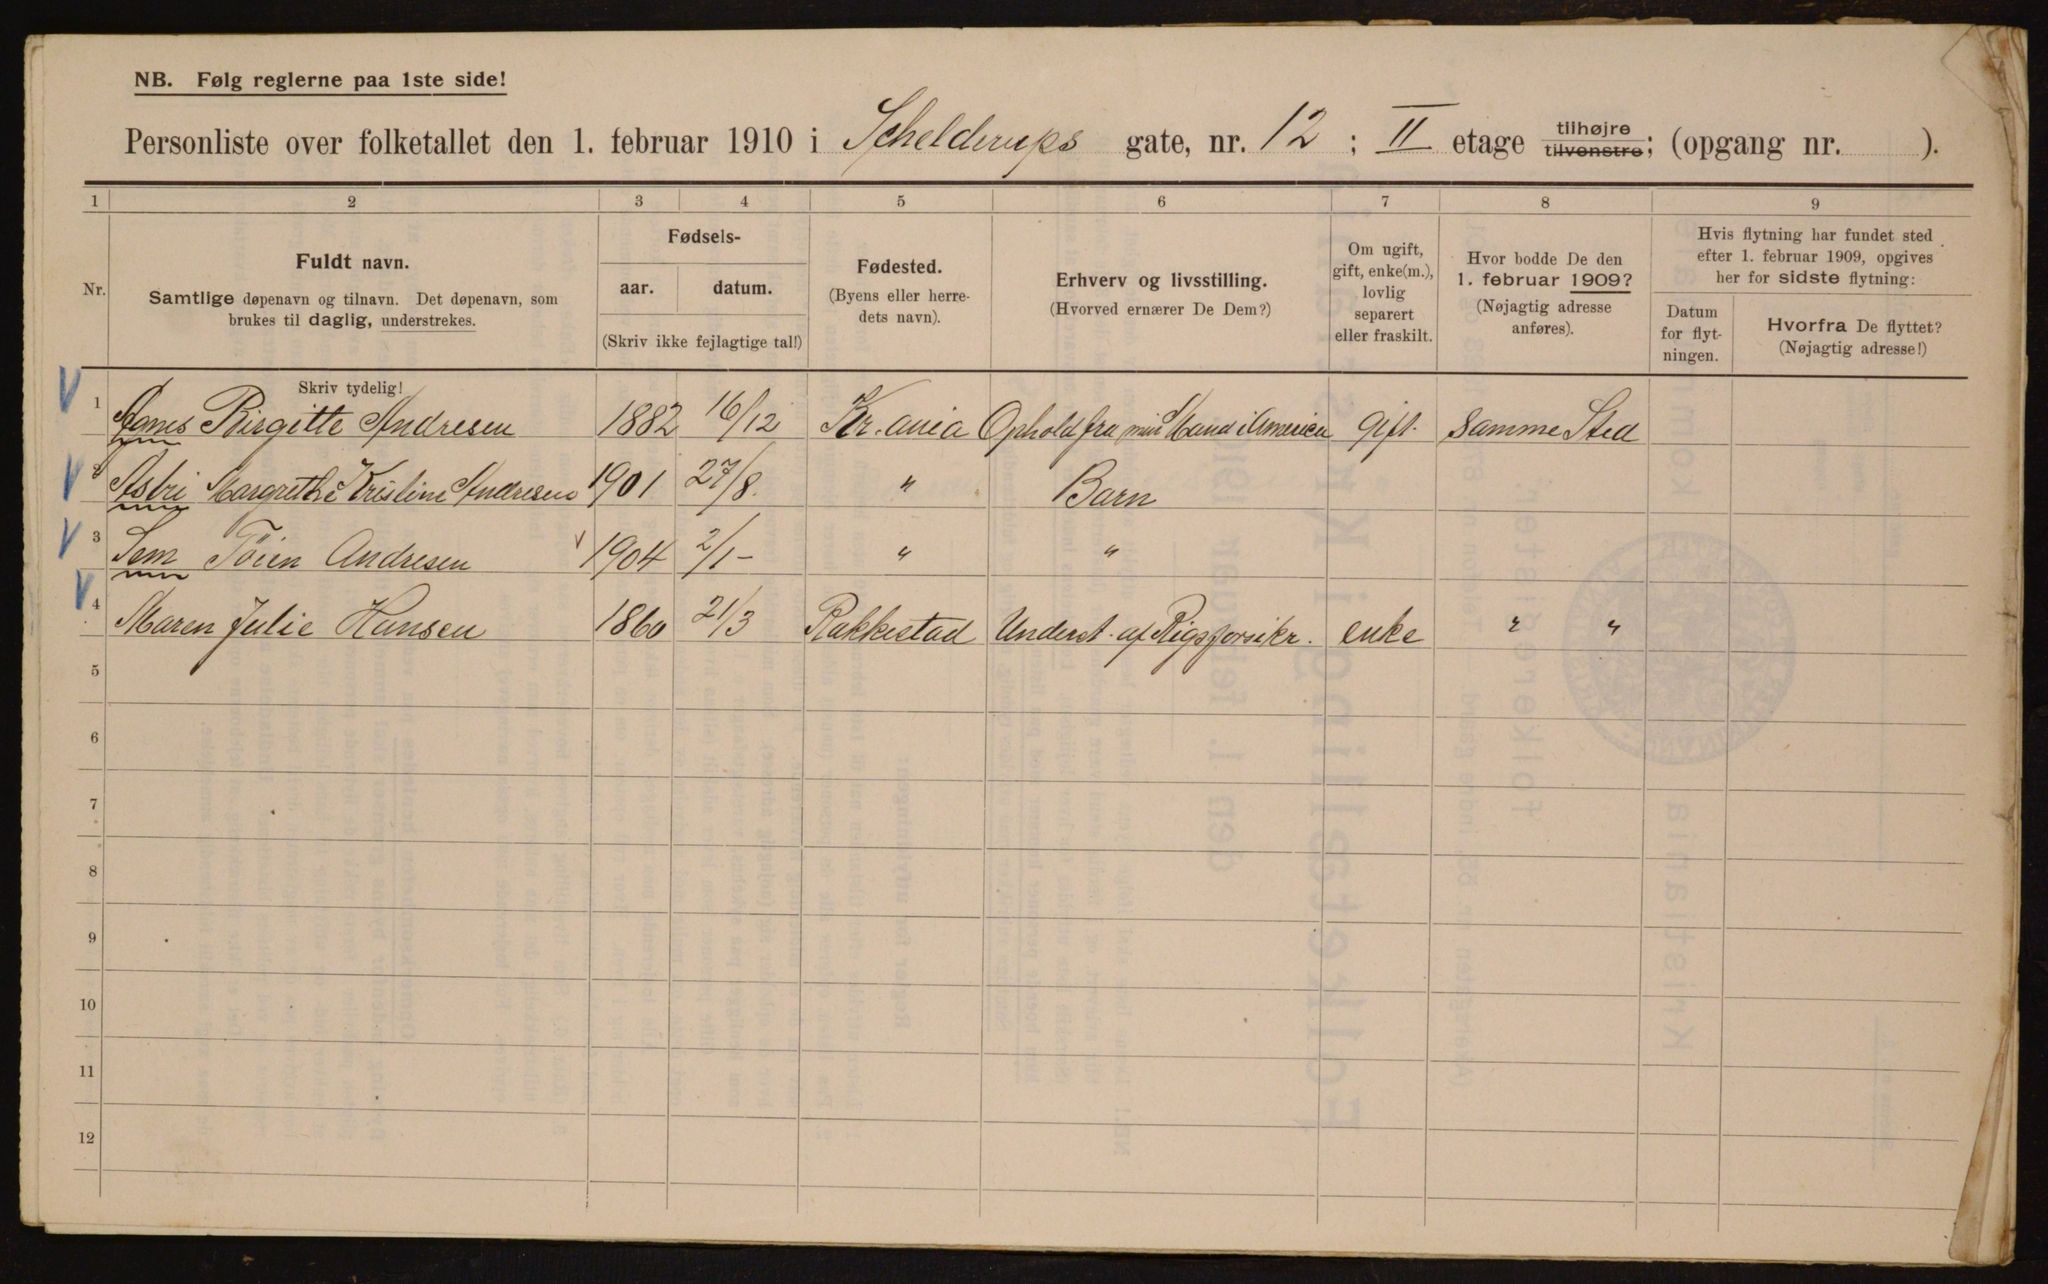 NB. Følg reglerne paa 1ste side!
Personliste over folketallet den 1. februar 1910 i Schelderups gate, nr. 12 ; II etage tilhøjre tilvenstre; (opgang nr. ).
1 2 3 4 5 6 7 8 9
Nr.
Fuldt navn.
Samtlige døpenavn og tilnavn. Det døpenavn, som
brukes til daglig, understrekes.
Skriv tydelig!
Fødsels-
aar. datum.
(Skriv ikke fejlagtige tal!)
Fødested.
(Byens eller herre-
dets navn).
Erhverv og livsstilling.
(Hvorved ernærer De Dem?)
Om ugift,
gift, enke(m.),
lovlig
separert
eller fraskilt.
Hvor bodde De den
1. februar 1909?
(Nøjagtig adresse
anføres).
Hvis flytning har fundet sted
efter 1. februar 1909, opgives
her for sidste flytning:
Datum
for flyt-
ningen.
Hvorfra De flyttet?
(Nøjagtig adresse!)
1 Agnes Birgitte Andresen 1882 16/12 Kr.ania Ophold fra min Mand i Amerien gift. Samme Sted
2 Astri Margrethe Kristine Andresen 1901 27/8. " Barn
3 Sem Töien Andresen 1904 2/1- " "
4 Maren Julie Hansen 1860 21/3 Rakkestad Underst. af Rigsforsikr. enke " "
5
6
7
8
9
10
11
12